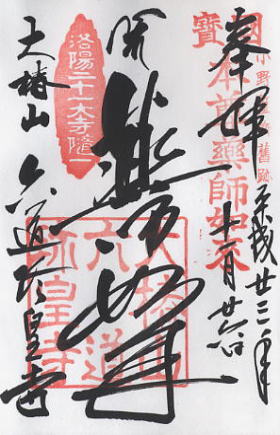 小野篁舊跡
奉拝
平成廿三年
十一月廿六日
國寶
本尊薬師如来
薬師如来
洛陽二十一大寺隨一
大椿山
六道
珍皇寺
大椿山 六道珍皇寺